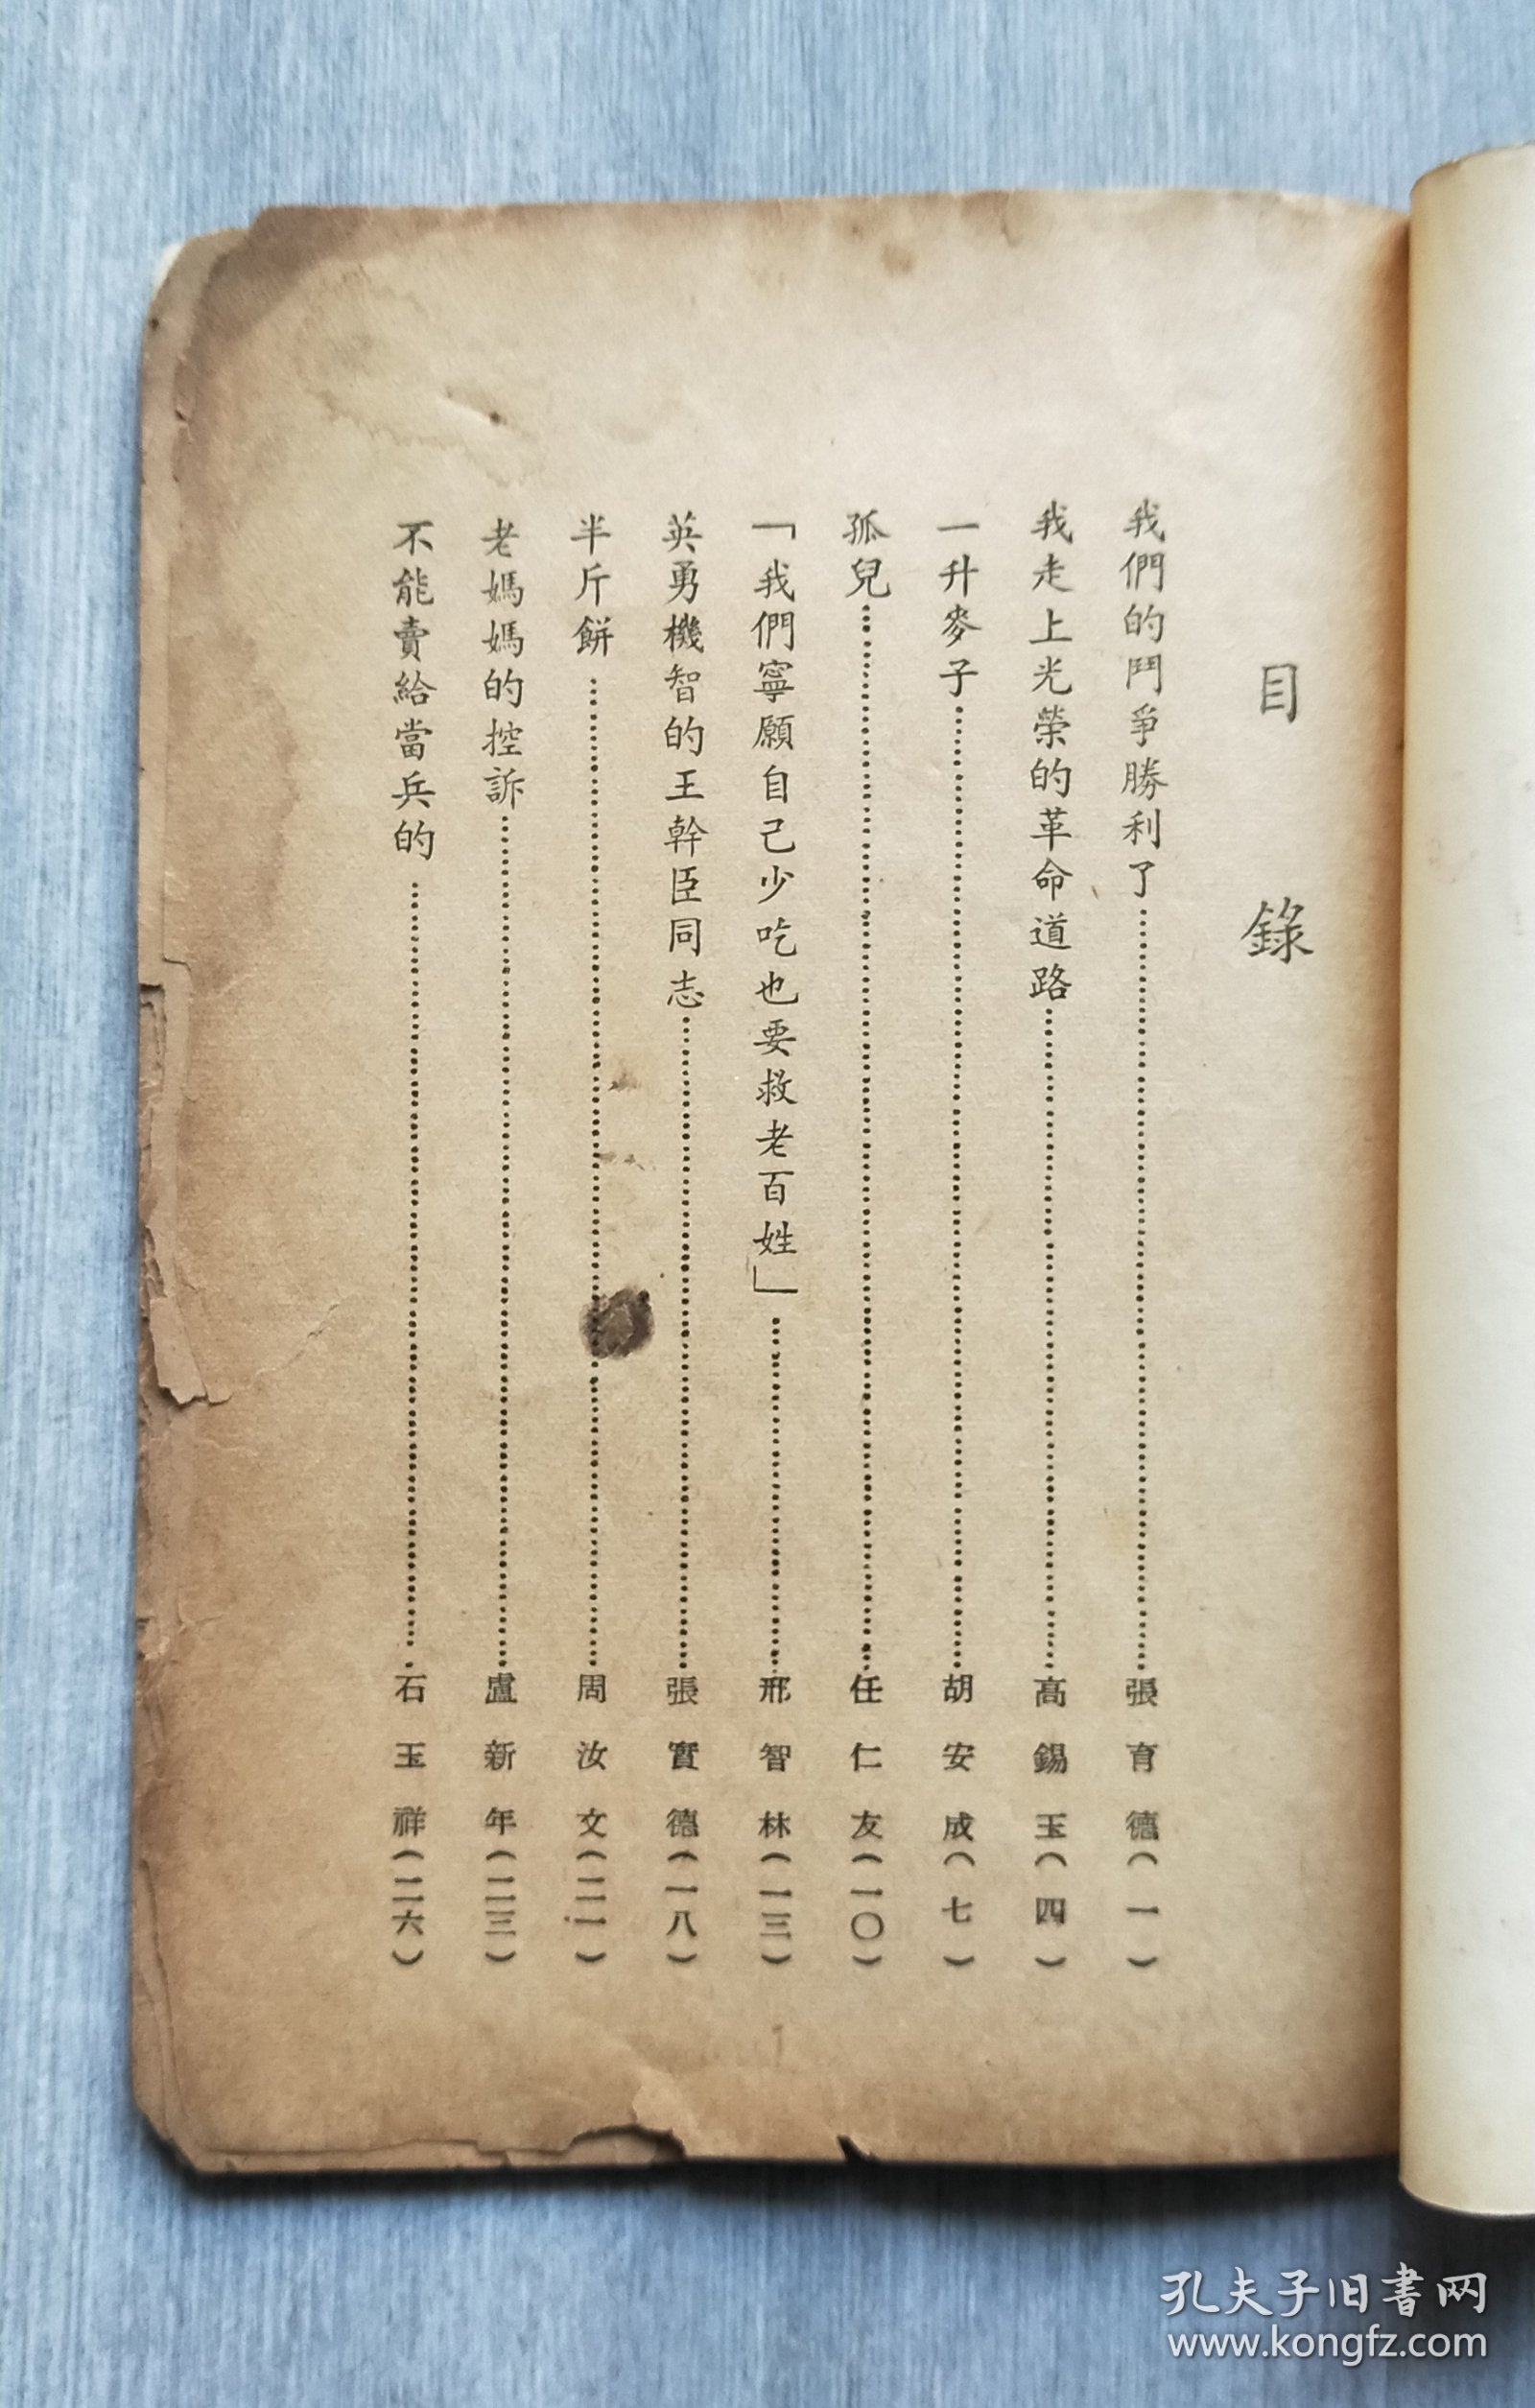 目錄
我們的鬥爭勝利了……張育德(一)
我走上光榮的革命道路……高錫玉(四)
一升麥子……胡安成(七)
孤兒……任仁友(一〇)
「我們寧願自己少吃也要救老百姓」……邢智林(一三)
英勇機智的王幹臣同志……張實德(一八)
半斤餅……周汝文(二一)
老媽媽的控訴……盧新年(二三)
不能賣給當兵的……石玉祥(二六)
孔夫子旧書网
www.kongfz.com